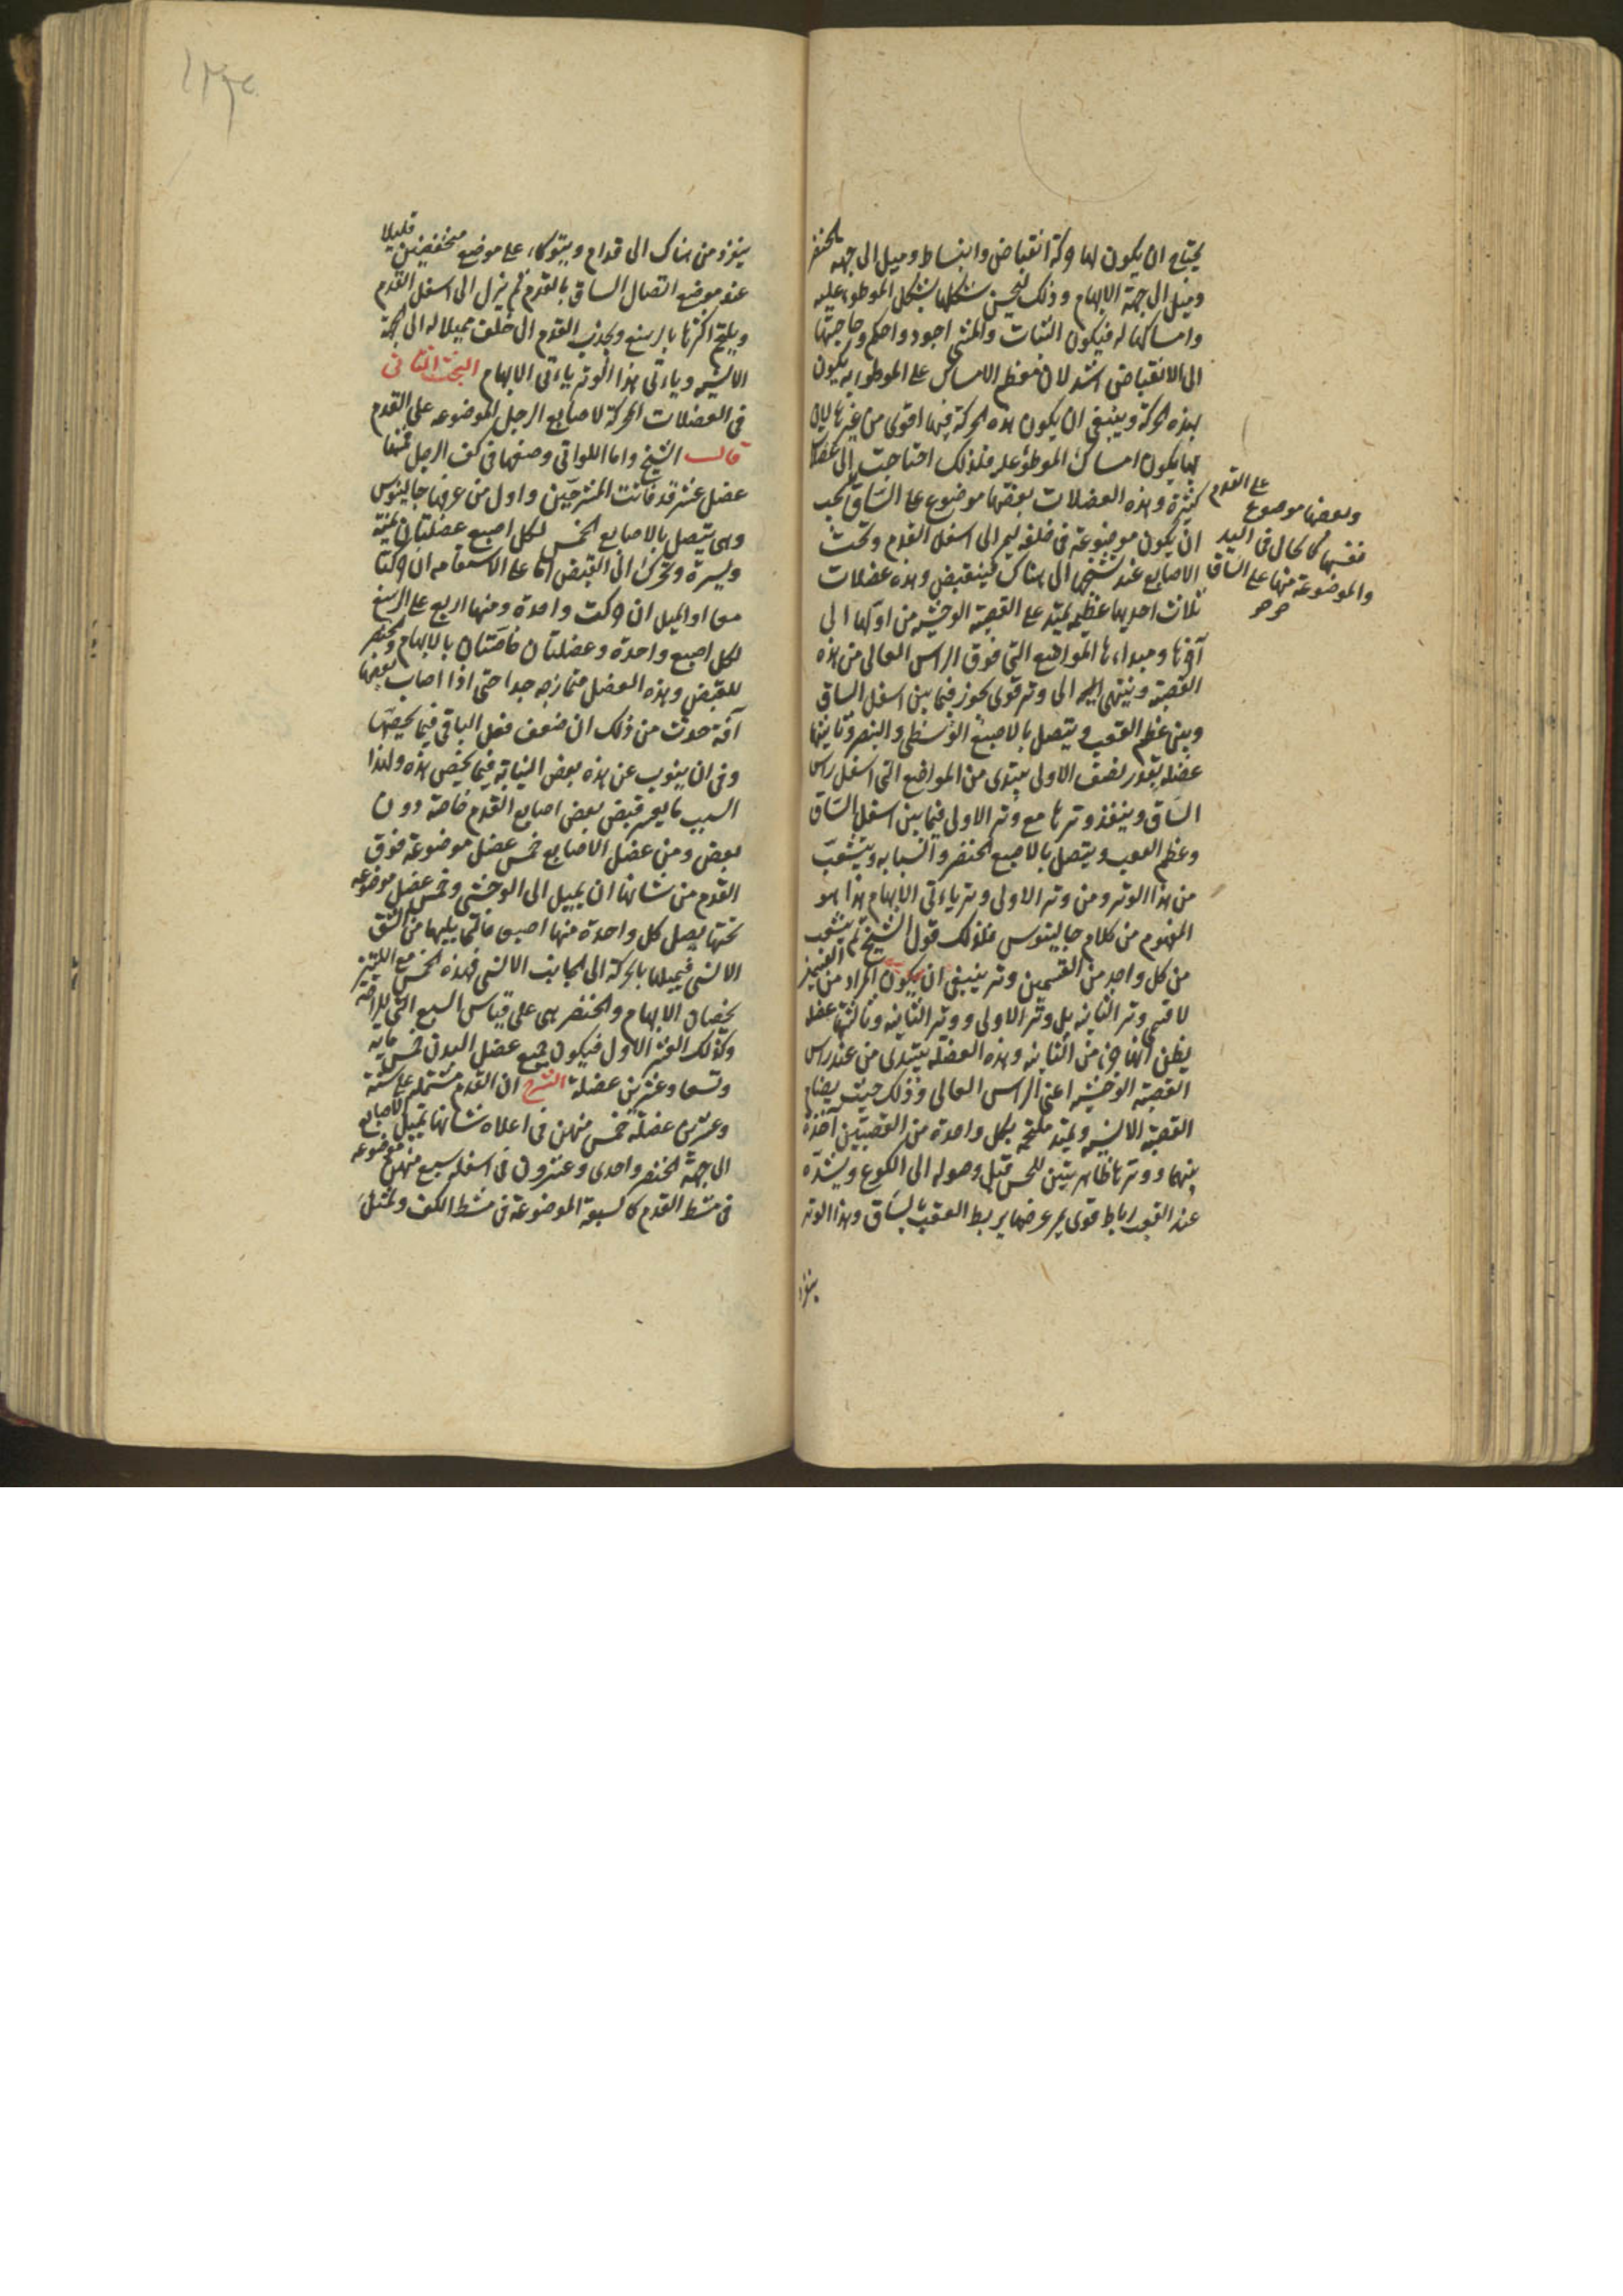 يحتاج ان يكون لها حركة انقباض وانبساط وميل الى جهة الخنصر
وميل الى جهة الابهام وذلك ليحسن شكلها بشكل الموطوء عليه
وامساكها له فيكون الثبات والمشى اجود واحكم وحاجتها
الى الانقباض اشد لان معظم الامساك على الموطوء به يكون
بهذه الحركة وينبغى ان يكون هذه الحركة فيها اقوى من غيرها لان
بها يكون امساك الموطوء عليه فلذلك احتاجت الى عضلا
كثيرة وهذه العضلات بعضها موضوع على الساق يجب
ان يكون موضوعة فى خلفه ليمر الى اسفل القدم وتحت
الاصابع عند تشنجها الى هناك فينقبض وهذه عضلات
ثلاث احديها عظيمه يمتد على القصبة الوحشيه من اولها الى
آخرها ومبداءها المواضع التى فوق الراس العالى من هذه
القصبة وينتهى الى وتر قوى يجوز فيما بين اسفل الساق
وبين عظم العقب ويتصل بالاصبع الوسطى والبنصر وثانيتها
عضله بقدر نصف الاولى يبتدى من المواضع التى اسفل راس
الساق وينفذ وترها مع وتر الاولى فيما بين اسفل الساق
وعظم العقب ويتصل بالاصبع الخنصر والسبابه ويتشعب
من هذا الوتر ومن وتر الاولى وتر ياءتى الابهام هذا هو
المفهوم من كلام جالينوس فلذلك قول الشيخ ثم يتشعب
من كل واحد من القسمين وتر ينبغى ان يكون المراد من القسمين
لا قسمى وتر الثانيه بل وتر الاولى ووتر الثانيه وثالثتها عضله
يظن انها جزء من الثانيه وهذه العضلة يبتدى من عند راس
القصبة الوحشيه اعنى الراس العالى وذلك حيث يضام
القصبة الانسيه ويمتد ملتحمه بكل واحدة من القصبتين آخذة
بينهما ووترها ظاهر بين للحس قبل وصوله الى الكوع ويشده
عند العقب رباط قوى يمر عرضا يربط العقب بالساق وهذا الوتر
ينفذ
وبعضها موضوع على القدم
نفسها كالحال فى اليد
والموضوعة منها على الساق
ينفذ من هناك الى قدام ويتوكاء على موضع منخفض قليلا
عند موضع اتصال الساق بالقدم ثم ينزل الى اسفل القدم
ويلتحم اكثرها بالرسغ ويجذب القدم الى خلف مميلا له الى الجهة
الانسيه وياءتى هذا الوتر ياءتى الابهام البحث الثانى
فى العضلات المحركة لاصابع الرجل الموضوعه على القدم
قال الشيخ واما اللواتى وضعها فى كف الرجل فمنها
عضل عشر قد فاتت المشرحين واول من عرفها جالينوس
وهى يتصل بالاصابع الخمس لكل اصبع عضلتان يمنة
ويسرة وتحرك الى القبض اما على الاستقامه ان حركتا
معا او الميل ان حركت واحدة ومنها اربع على الرسغ
لكل اصبع واحدة وعضلتان خاصتان بالابهام والخنصر
للقبض وهذه العضل متمازجه جدا حتى اذا اصاب بعضها
آفة حدث من ذلك ان ضعف فعل الباقى فيما يخصها
وفى ان ينوب عن هذه بعض النيابة فيما يخص هذه ولهذا
السبب ما يعسر قبض بعض اصابع القدم خاصة دون
بعض ومن عضل الاصابع خمس عضل موضوعة فوق
القدم من شانها ان يميل الى الوحشى وخمس عضل موضوعه
تحتها يصل كل واحدة منها اصبعا مما يليها من الشق
الانسى فيميلها بالحركة الى الجانب الانسى فهذه الخمس مع اللتين
يخصان الابهام والخنصر هى على قياس السبع التى للراحة
وكذلك العشر الاول فيكون جميع عضل البدن خمس مايه
وتسعا وعشرين عضلة الشرح ان القدم مشتمله على ستة
وعشرين عضلة خمس منهن فى اعلاه شانها تميل الاصابع
الى جهة الخنصر واحدى وعشرون فى اسفله سبع منهن موضوعه
فى مشط القدم كالسبعة الموضوعة فى مشط الكف وتمثل